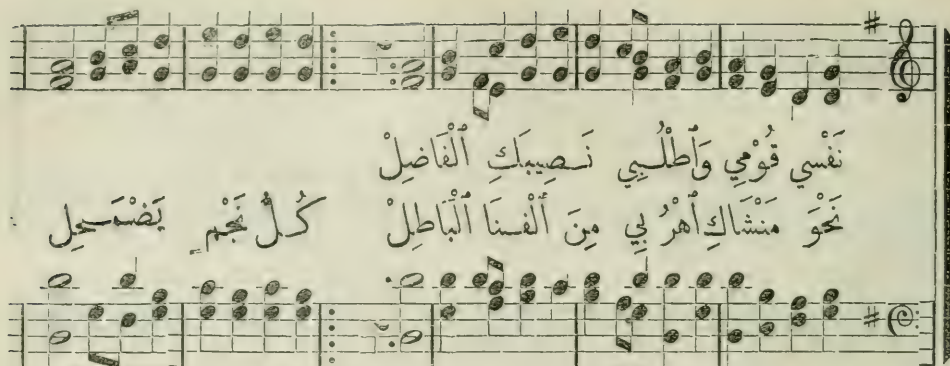 نَفْسي قُوْمي وَٱطْلُبِي نَصِيبَكِ ٱلْفَاضِلْ
نَحْوَ مَنْشَاكِ ٱهْرُبِي مِنَ ٱلْفَنَا ٱلْبَاطِلْ كُلُّ نَجْمٍ يَضْمَحِل